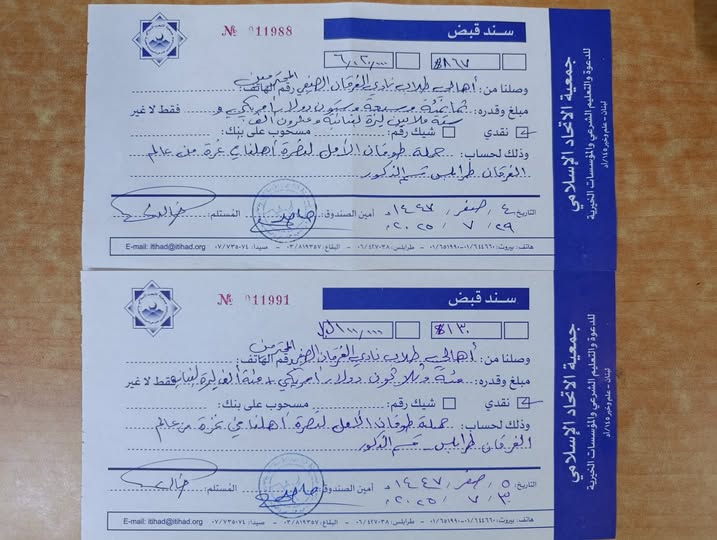 سند قبض
№ 011988
$ ٨٦٧
٦/٠٢٠/٠٠٠
وصلنا من: أهالي طلاب نادي الفرقان الصيفي المحترمين رقم الهاتف:
مبلغ وقدره: ثمانمئة وسبعة وستون دولار امريكي و فقط لا غير
ستة ملايين ليرة لبنانية وعشرون الف
نقدي شيك رقم: مسحوب على بنك:
وذلك لحساب: حملة طوفان الأمل لنصرة أهلنا في غزة من عالم
الفرقان طرابلس قسم الذكور
التاريخ: ٤ / صفر / ١٤٤٧ هـ أمين الصندوق: المستلم:
٢٩ / ٧ / ٢٠٢٥ م
هاتف: بيروت: ٠١/٦٤٤٦٦٠ - ٠١/٦٥١٩٩٠ - طرابلس: ٠٦/٤٢٧٠٣٨ - البقاع: ٠٣/٨١٩٣٥٧ - صيدا: ٠٧/٧٣٥٠٧٤ E-mail: itihad@itihad.org
جمعية الاتحاد الإسلامي
للدعوة والتعليم الشرعي والمؤسسات الخيرية
لبنان - علم وخبر ١٤٥/أد
سند قبض
№ 011991
$ ١٣٠
١٠٠/٠٠٠ ل.ل
وصلنا من: أهالي طلاب نادي الفرقان الصيفي المحترمين رقم الهاتف:
مبلغ وقدره: مئة وثلاثون دولار امريكي + مئة ألف ليرة لبنانية فقط لا غير
نقدي شيك رقم: مسحوب على بنك:
وذلك لحساب: حملة طوفان الأمل لنصرة أهلنا في غزة من عالم
الفرقان طرابلس - قسم الذكور
التاريخ: ٥ / صفر / ١٤٤٧ هـ أمين الصندوق: المستلم:
٣٠ / ٧ / ٢٠٢٥ م
هاتف: بيروت: ٠١/٦٤٤٦٦٠ - ٠١/٦٥١٩٩٠ - طرابلس: ٠٦/٤٢٧٠٣٨ - البقاع: ٠٣/٨١٩٣٥٧ - صيدا: ٠٧/٧٣٥٠٧٤ E-mail: itihad@itihad.org
جمعية الاتحاد الإسلامي
للدعوة والتعليم الشرعي والمؤسسات الخيرية
لبنان - علم وخبر ١٤٥/أد